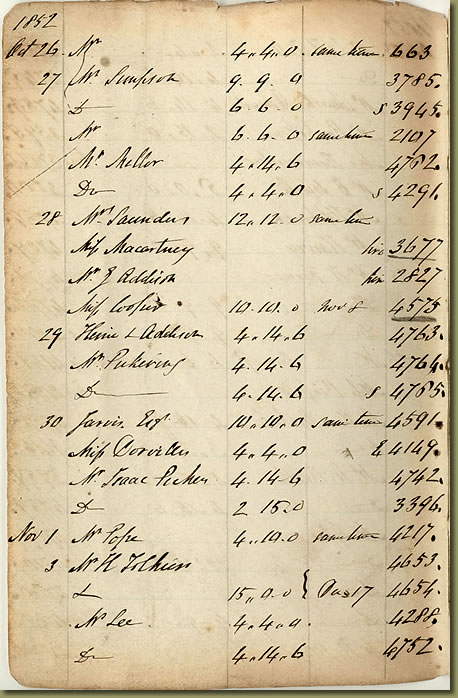 1852
Oct 26 Mr 4.4.0 same time 663
27 Mr Simpson 9.9.0 3785.
D 6.6.0 s 3945.
Mr 6.6.0 same time 2107
Mr Mellor 4.14.6 4782.
Do 4.4.0 s 4291.
28 Mrs Saunders 12.12.0 same time
Miss Macartney hire 3677
Mr J Addison hire 2827
Miss Cooper 10.10.0 Nov 8 4575
29 Heine & Addison 4.14.6 4763.
Mr Pickering 4.14.6 4764.
D 4.14.6 s 4765.
30 Jarvis Esqr 10.10.0 same time 4591.
Miss 4.4.0 & 4149.
Mr Isaac 4.14.6 4742.
D 2 15.0 3396.
Nov 1 Mr Pope 4.10.0 same time 4217.
3 Mr H Tolkien 4653.
& 15.0.0 17 4654.
Mr Lee 4.4.0 4288.
D 4.14.6 4752.